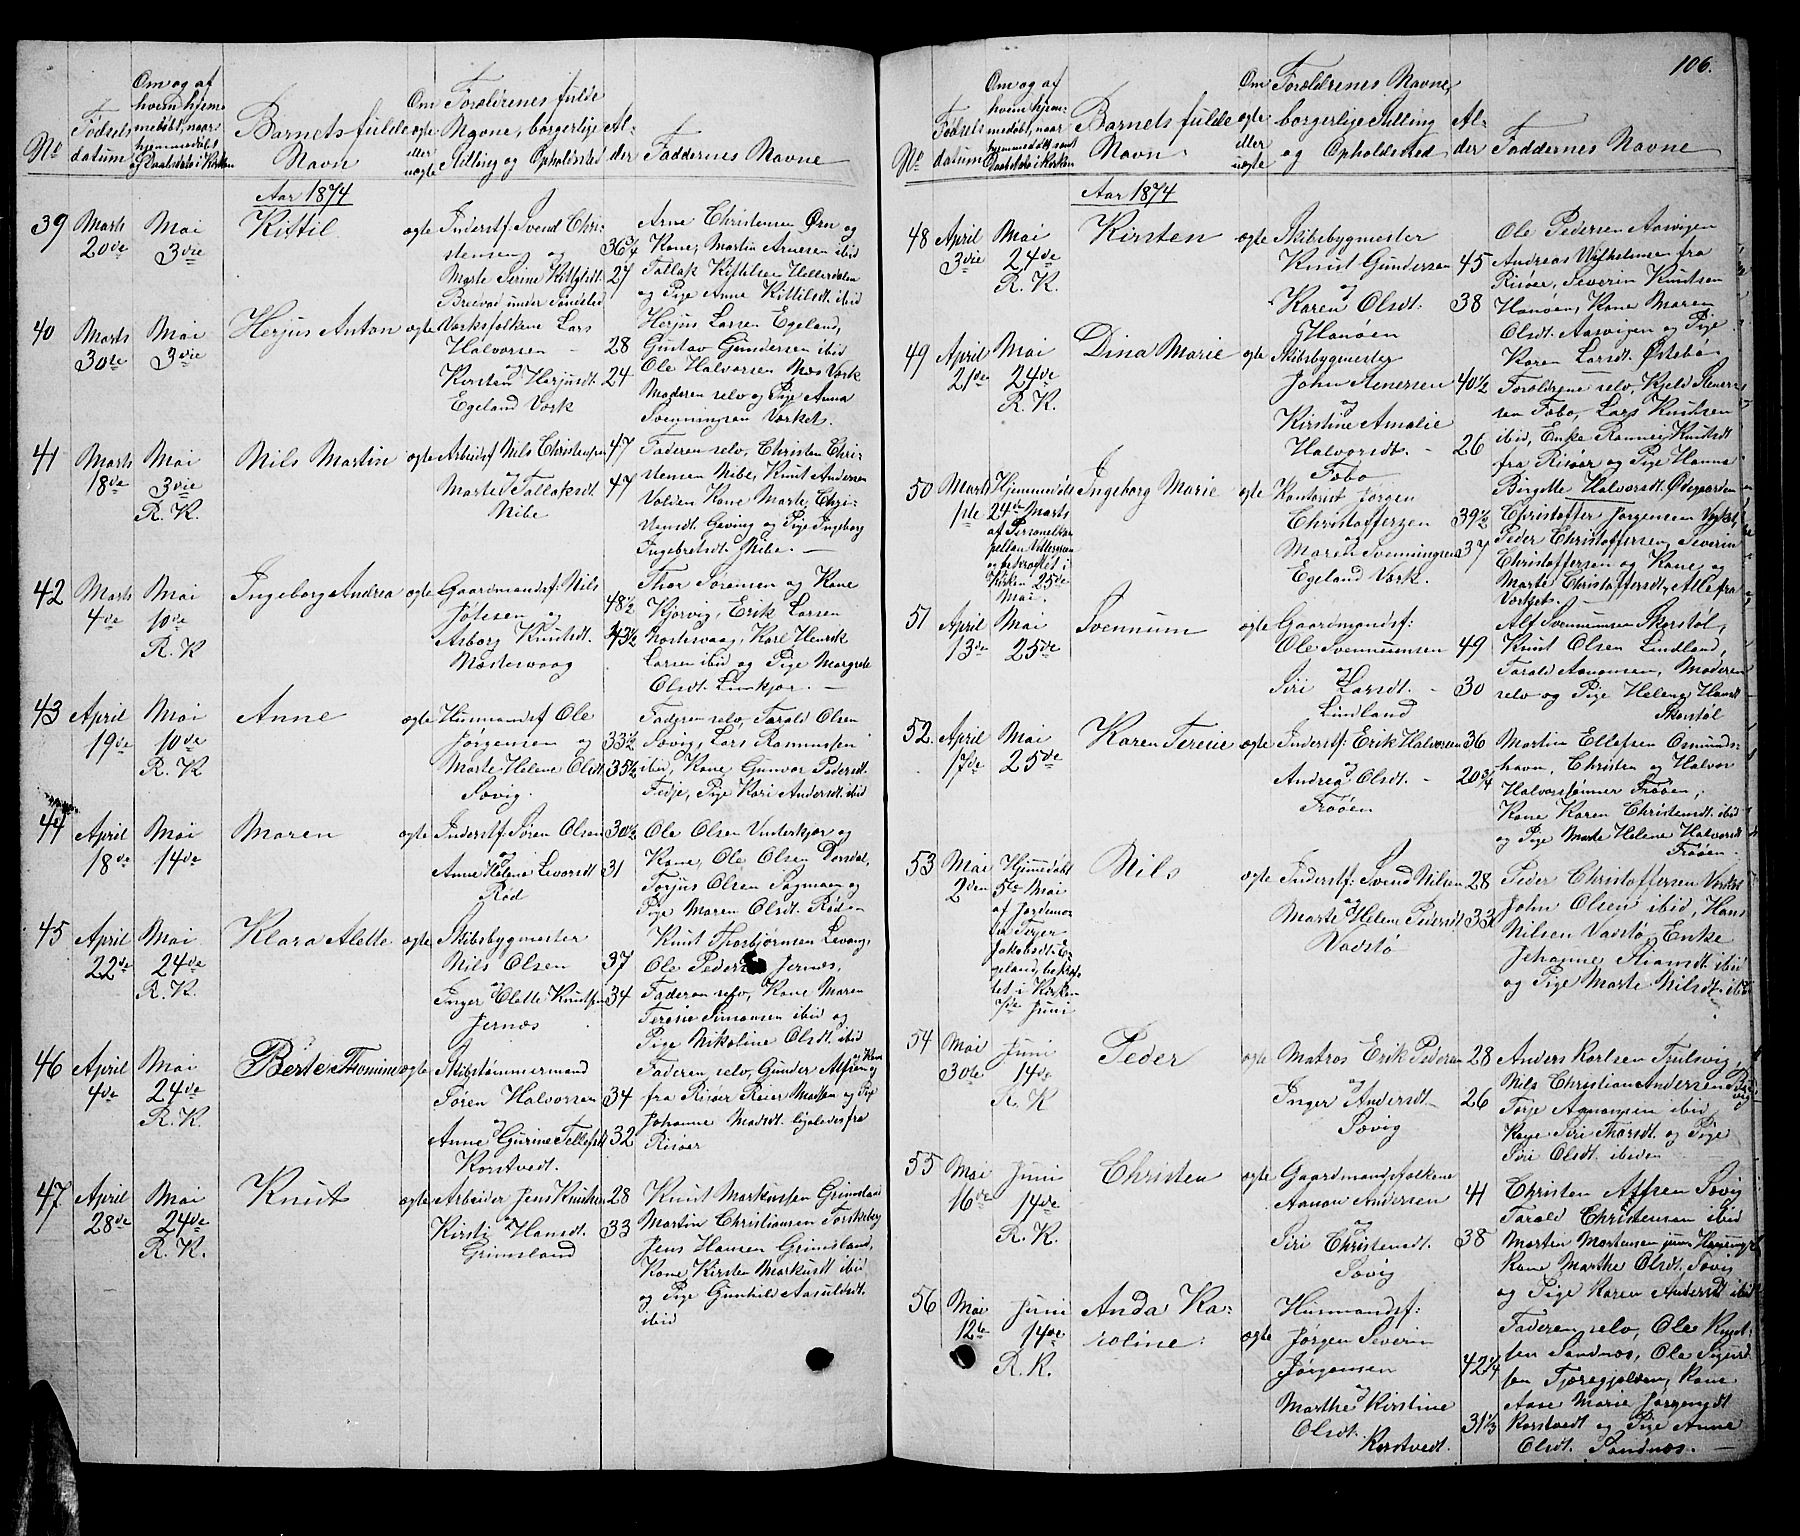 106.
No
Fødsels
datum
Om og af
hvem hjem-
medøbt, naar
hjemmedøbt
og Daabsdato i Kirken
Barnets fulde
Navn
Om
ægte
eller
uægte
Forældrenes fulde
Navne, borgerlige
Stilling og Opholdssted
Al-
der
Faddernes Navne
Aar 1874
39 Marts 20de
Mai 3die
Kittil
ægte
Inderstf. Svend Chri-
stensen og 36 3/4
Marte Serine Kittilsdt. 27
Brevad under
Arne Christensen Ørn og
Kone, Martin Arnesen ibid
Tallak Kittilsen Hellerdalen
og Pige Anne Kittilsdt. ibid
40 Marts 30te
Mai 3die
Herjus Anton
ægte
Værksfolkene Lars
Halvorsen 28
og
Kirsten Herjusdt. 24
Egeland Værk
Herjus Larsen Egeland,
Gustav Gundersen ibid
Ole Halvorsen Næs Værk
Moderen selv og Pige Anna
Svenningsen Værket.
41 Marts 18de
Mai 3die
R. K.
Nils Martin
ægte
Arbeidsf. Nils Christensen 47
og
Marte Tallaksdt. 47
Nibe
Faderen selv, Christen Chri-
stensen Nibe, Knut Andersen
Volden Kone Marte Chri-
stensdt. Geving og Pige Ingeborg
Ingebretsdt. Nibe.
42 Marts 4de
Mai 10de
R. K
Ingeborg Andrea
ægte
Gaardmandsf. Nils
Jølesen og 48 1/2
Asborg Knutsdt. 43 1/2
Næstesvaag
Thor Sørensen og Kone
Kjørvig, Erik Larsen
Næstesvaag, Karl Henrik
Larsen ibid og Pige Margrete
Olsdt. Linkjær.
43 April 19de
Mai 10de
R. K
Anne
ægte
Husmandsf. Ole
Jørgensen og 33 1/2
Marte Helene Olsdt. 35 1/2
Søvig.
Faderen selv, Tarald Olsen
Søvig, Lars Rasmussen
ibid, Kone Gunvor Pedersdt.
Fedje, Pige Kari Andersdt. ibid
44 April 18de
Mai 14de
Maren
ægte
Inderstf. Søren Olsen 30 1/2
og
Anne Helene Levorsdt 31
Rød
Ole Olsen Vinterkjær og
Kone, Ole Olsen Dørsdal,
Torjus Olsen Sagmoen og
Pige Maren Olsdt. Rød
45 April 22de
Mai 24de
R. K.
Klara Alette
ægte
Skibsbygmester
Nils Olsen 37
og
Inger Elette Knutsen 34
Jernæs
Knut Thorbjørnsen Levang,
Ole Pedersen Jernæs,
Faderen selv, Kone Maren
Teresie Simonsen ibid og
Pige Nikoline Olsdt. ibid
46 April 4de
Mai 24de
R. K.
Berte Thomine
ægte
Skibstømmermand
Søren Halvorsen 34
og
Anne Gurine Tellefsdt. 32
Korstvedt.
Faderen selv, Gunder Alfsen og Kone
fra Risøer Reier Madsen og Pige
Johanne Madsdt. ligeledes fra
Risøer
47 April 28de
Mai 24de
R. K.
Knut
ægte
Arbeider Jens Knutsen 28
og
Kirsti Hansdt. 33
Grimsland
Knut Markussen Grimsland
Martin Christiansen Torskeberg
Jens Hansen Grimsland,
Kone Kirsten Markusdt ibid
og Pige Gunhild Aasuldsdt.
ibid
No
Fødsels
datum
Om og af
hvem hjem-
medøbt, naar
hjemmedøbt samt
Daabsdato i Kirken
Barnets fulde
Navn
Om
ægte
eller
uægte
Forældrenes Navne,
borgerlige Stilling
og Opholdssted
Al-
der
Faddernes Navne
Aar 1874
48 April 3die
Mai 24de
R. K.
Kirsten
ægte
Skibsbygmester
Knut Gundersen 45
og
Karen Olsdt. 38
Hanøen
Ole Pedersen Aasvigen
Andreas Vilhelmsen fra
Risøer, Severin Knutsen
Hanøen, Kone Maren
Olsdt. Aasvigen og Pige
Karen Larsdt. Østebø
49 April 21de
Mai 24de
R. K.
Dina Marie
ægte
Skibsbygmester
John Stenersen 40 1/2
og
Kirstine Amalie
Halvorsdt. 26
Fæbo
Forældrene selv, Kjeld Stener-
sen Fæbo, Lars Knutsen
ibid, Enke Ronnei Knutsdt
fra Risøer og Pige Hanna
Birgitte Halvorsdt. Ødegaarden
50 Marts 1ste
Hjemmedøbt
24de Marts
af Personelka-
pellan
og bekræftet i
Kirken 25de
Mai.
Ingeborg Marie
ægte
Kontorist Jørgen
Christoffersen 39 1/2
og
Maren Svenningsen 37
Egeland Værk.
Christoffer Jørgensen Værket,
Peder Christoffersen, Severin
Christoffersen og Kone og
Marte Christoffersdt, Alle fra
Værket.
51 April 13de
Mai 25de
Svennum
ægte
Gaardmandsf:
Ole Svennumsen 49
og
Siri Larsdt. 30
Lindland
Alf Svennumsen Skorstøl,
Knut Olsen Lindland,
Tarald Aanonsen, Moderen
selv og Pige Helene Hansdt
Skorstøl
52. April 17de
Mai 25de
Karen Teresie
ægte
Inderstf: Erik Halvorsen 36
og
Andrea Olsdt. 20 3/4
Frøøen
Martin Ellefsen Osmunds-
havn, Christen og Halvor
Halvorsønner Frøøen,
Kone Karen Christensdt. ibid
og Pige Marte Helene Halvorsdt
Frøøen.
53 Mai 2den
Hjemmedøbt
5te Mai
af Jordemo-
der Torjer
Jakobsdt. E-
geland, bekræf-
tet i Kirken
7de Juni
Nils
ægte
Inderstf: Svend Nilsen 28
og
Marte Helene Pedersdt. 33
Vadstø
Peder Christoffersen Værket
John Olsen ibid, Hans
Nilsen Vadstø, Enke
Johanne ibid
og Pige Marte Nilsdt. ibid
54 Mai 30te
Juni 14de
R. K
Peder
ægte
Matros Erik Pedersen 28
og
Inger Andersdt. 26
Søvig
Anders Karlsen Trulsvig,
Nils Christian Andersen
Torje Aanonsen ibid
Kone Siri Thorsdt. og Pige
Siri Olsdt. ibidem
55 Mai 16de
Juni 14de
R. K.
Christen
ægte
Gaardmandsfolkene
Aanon Andersen 41
og
Siri Christensdt. 38
Søvig
Christen Alfsen Søvig
Tarald Christensen ibid
Morten Mortensen jun.
Kone Marthe Olsdt. Søvig
og Pige Karen Andersdt ibid
56 Mai 12te
Juni 14de
R. K.
Anda Ka-
roline:
ægte
Husmandsf:
Jørgen Severin
Jørgensen 42 1/4
og
Marthe Kirstine
Olsdt. 31 1/3
Korstvedt.
Faderen selv, Ole Knut-
sen Sandnæs, Ole Sigurd-
sen Fjæregjolden, Kone
Aase Marie Jørgensdt.
Korstvedt og Pige Anne
Olsdt. Sandnæs.